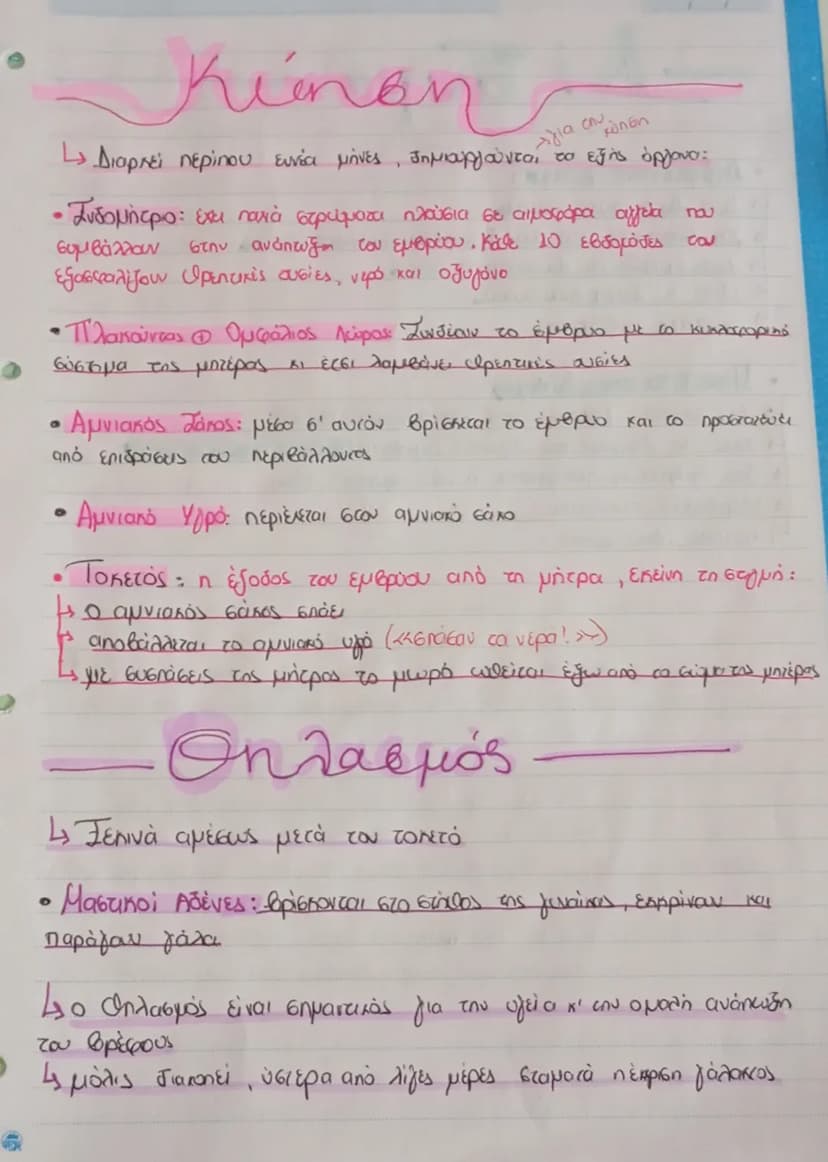 Κύηση
για την κύηση
↳ Διαρκεί περίπου εννία μήνες, δημιουργούνται τα εξής όργανα:
• Ενδομήτριο: έχει παχιά στρώματα πλούσια σε αιμοφόρα αγγεία που
συμβάλλουν στην ανάπτυξη του εμβρύου. Κάθε 10 εβδομάδες του
εξασφαλίζουν θρεπτικές ουσίες, νερό και οξυγόνο
• Πλακούντας ⊕ Ομφάλιος Λώρος: Συνδέουν το έμβρυο με το κυκλοφορικό
σύστημα της μητέρας κι έτσι λαμβάνει θρεπτικές ουσίες
• Αμνιακός Σάκος: μέσα σ' αυτόν βρίσκεται το έμβρυο και το προστατεύει
από επιδράσεις του περιβάλλοντος
• Αμνιακό Υγρό: περιέχεται στον αμνιακό σάκο
• Τοκετός: η έξοδος του εμβρύου από τη μήτρα, εκείνη τη στιγμή:
↳ ο αμνιακός σάκος σπάει
↳ αποβάλλεται το αμνιακό υγρό (<<έσπασαν τα νερά!>>)
↳ με συσπάσεις της μήτρας το μωρό ωθείται έξω από το σώμα της μητέρας
Θηλασμός
↳ Ξεκινά αμέσως μετά τον τοκετό
• Μαστικοί Αδένες: βρίσκονται στο στήθος της γυναίκας, εκκρίνουν και
παράγουν γάλα
↳ ο Θηλασμός είναι σημαντικός για την υγεία κ' την ομαλή ανάπτυξη
του βρέφους
↳ μόλις διακοπεί, ύστερα από λίγες μέρες σταματά η έκκριση γάλακτος